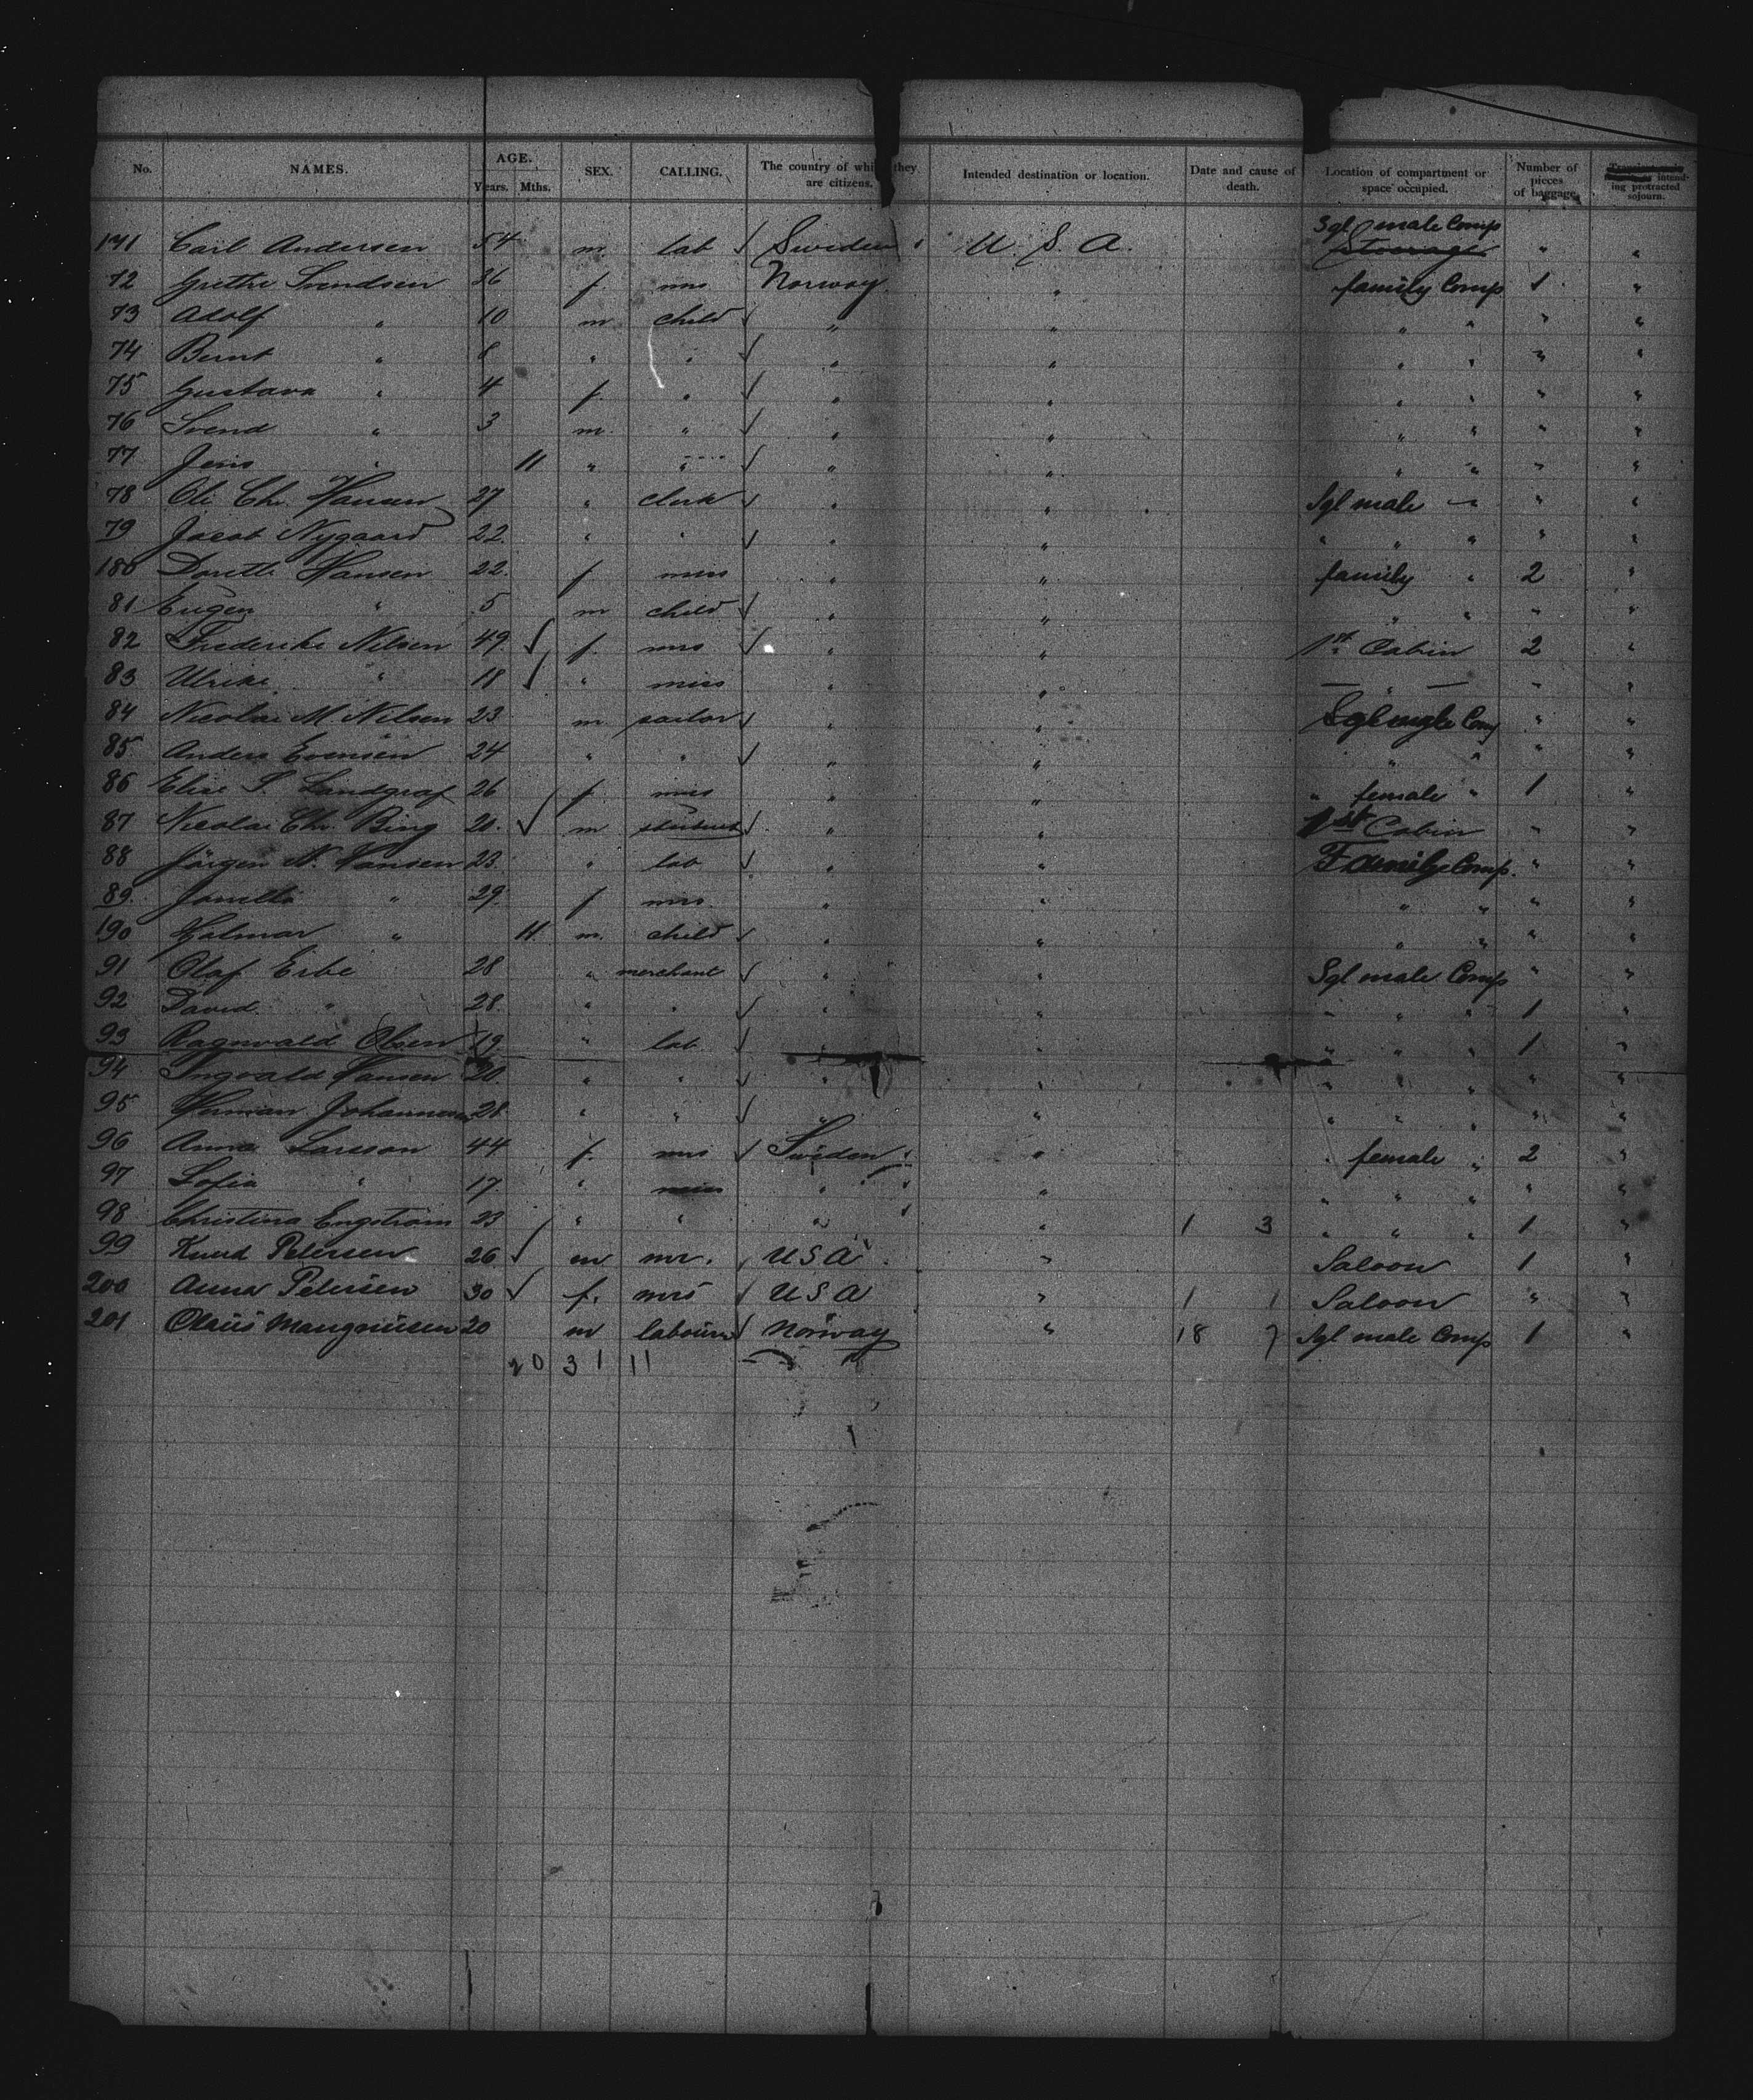 No. NAMES. AGE. Years. Mths. SEX. CALLING. The country of which they are citizens. Intended destination or location. Date and cause of death. Location of compartment or space occupied. Number of pieces of baggage. intending protracted sojourn.
171 Carl Andersen 54 m. lab Sweden U. S. A. Sgl male Comp Steerage " "
72 Grethe Svendsen 36 f. mrs Norway " family Comp 1 "
73 Adolf " 10 m child " " " " " "
74 Bernt " 8 " " " " " " " "
75 Gustava " 4 f. " " " " " " "
76 Svend " 3 m. " " " " " " "
77 Jens " 11 " " " " " " " "
78 Ole Chr. Hansen 27 " clerk " " Sgl male " " "
79 Jacob Nygaard 22. " " " " " " " " "
180 Dorette Hansen 22. f mrs " " family " 2 "
81 Eugen " 5 m child " " " " " "
82 Frederike Nilsen 49. f. mrs " " 1st Cabin 2 "
83 Ulrike " 18 " miss " " — " — " "
84 Nicolai M Nilsen 23 m sailor " " Sgl male Comp " "
85 Anders Evensen 24 " " " " " " " " "
86 Elise S. Landgraf 26 f. mrs " " " female " 1 "
87 Nicolai Chr. Bing 20. m student " " 1st Cabin " "
88 Jörgen N. Hansen 23. " lab " " Family Comp. " "
89. " 29. f mrs. " " " " " "
190 Hjalmar " 11. m. child " " " " " "
91 Olaf Eibe 28 " merchant " " Sgl male Comp " "
92 David " 28. " " " " " " " 1 "
93 Ragnvald Olsen 19 " lab " " " " " 1 "
94 Ingvald Hansen 20. " " " " " " " " "
95 Herman Johannesen 28 " " " " " " " " "
96 Anna Larsson 44 f. mrs Sweden " " female " 2 "
97 Sofia " 17. " miss " " " " " " "
98 Christina Engström 23 " " " " 1 3 " " " 1 "
99 Knud Petersen 26 m mr. U S A " Saloon 1 "
200 Anna Petersen 30 f. mrs U S A " 1 1 Saloon " "
201 Olaus Mangnusen 20 m labourer Norway " 18 7 Sgl male Comp 1 "
20 31 11